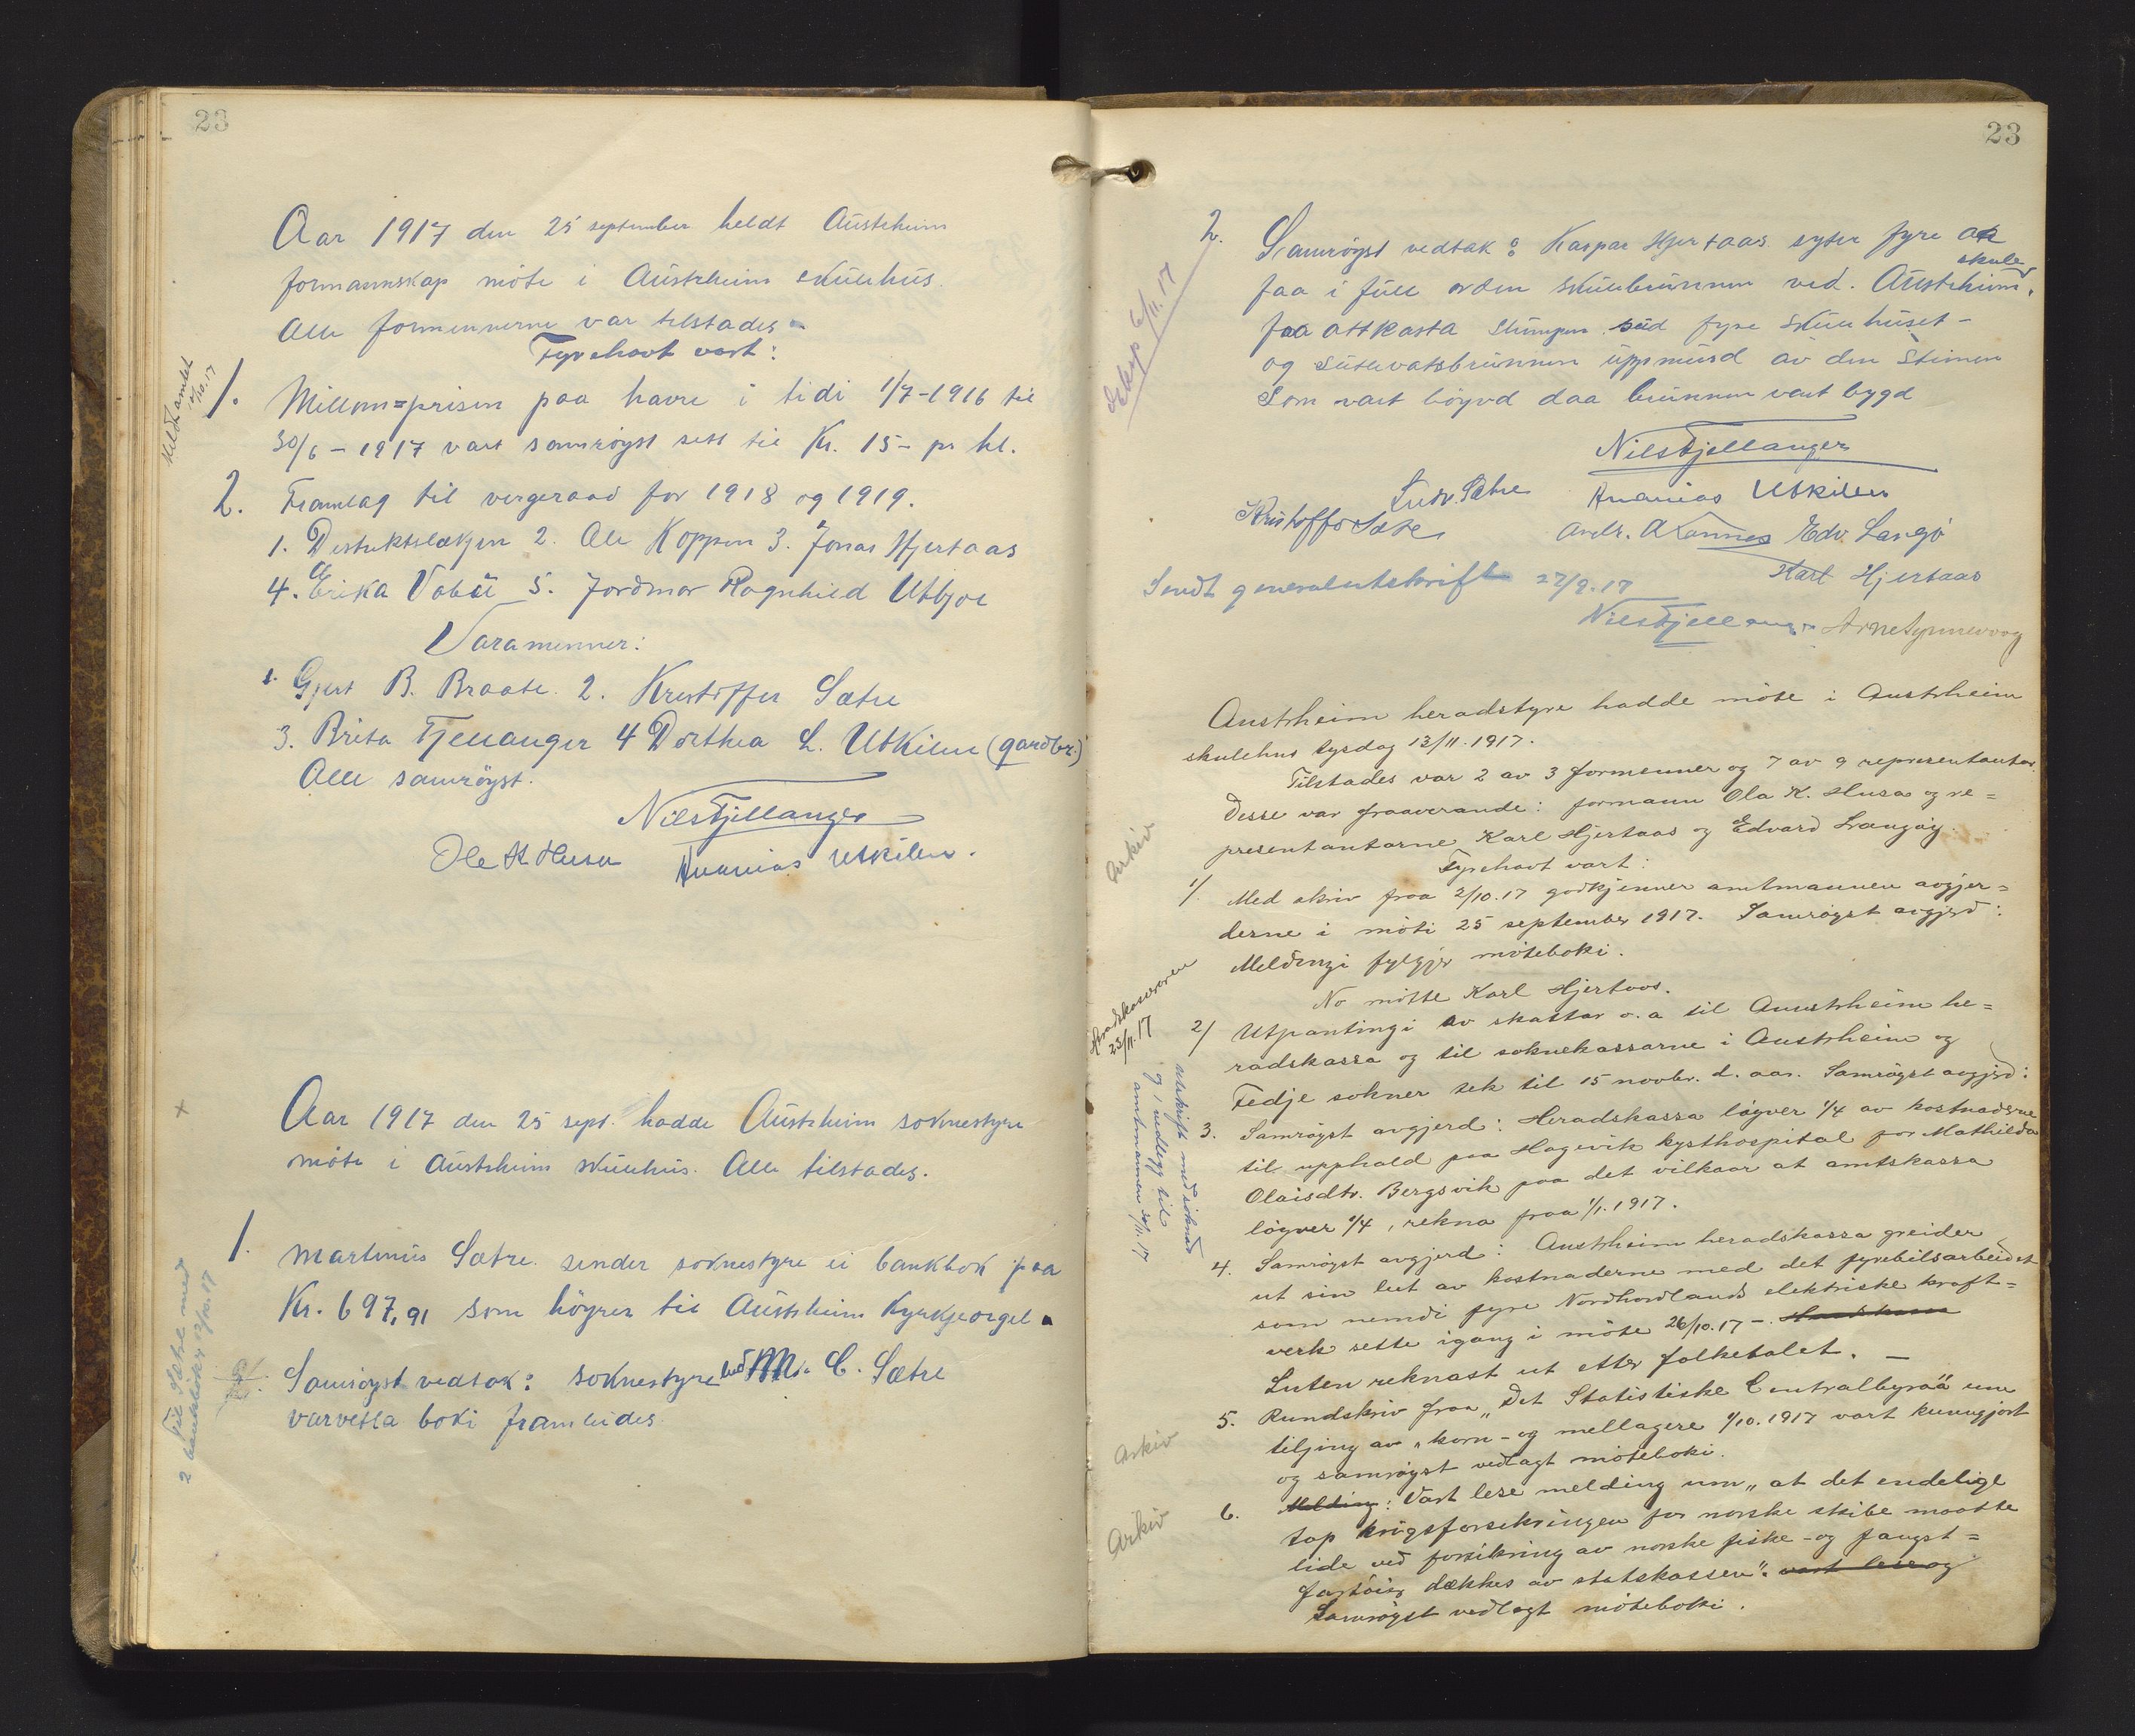 23
Aar 1917 den 25 september heldt Austrheim
formannskap möte i Austrheim skulehus.
Alle formennerne var tilstades.
Fyrehavt vart:
Meldt amtet
2/10.17
1. Millom=prisen paa havre i tidi 1/7-1916 til
30/6 - 1917 vart samröyst sett til Kr. 15- pr hl.
2. Framlag til vergeraad for 1918 og 1919.
1. Distriktslækjen 2. Ole Koppen 3. Jonas Hjertaas
4. Erika Vabö 5. Jordmor Ragnhild Utbjoe
Varamenner:
1. Gjert B. Braate. 2. Kristoffer Sætre
3. Brita Fjellanger 4 Dorthea L. Utkilen (gardbr.)
Alle samröyst.
Nils Fjellanger
Ole K Husa Ananias Utkilen.
Aar 1917 den 25 sept. hadde Austrheim soknestyre
möte i Austrheim skulehus. Alle tilstades.
1. Martinus Sætre sender soknestyre ei bankbok paa
Kr. 697,91 som höyrer til Austrheim Kyrkjeorgel.
Samröyst vedtak: soknestyre let M. C. Sætre
varveitla boki framleides
Til Sætre med
2 bankbøker 2/10.17
23
2. Samröyst vedtak: Kaspar Hjertaas syter fyre aa
faa i full orden skulebrunnen ved Austrheim skule,
faa attkasta slumpen sud fyre skulehuset -
og sistevatsbrunnen uppmurd av den steinen
som vart löyvd daa brunnen vart bygd
6/11.17
Nils Fjellanger
Ludv. Sætre Ananias Utkilen
Kristoffer Sætre Andr. Kannes Edv. Langö
Karl Hjertaas
Sendt generalutskrift 27/9.17
Nils Fjellanger Arne Synnevaag
Austrheim heradstyre hadde möte i Austrheim
skulehus tysdag 13/11.1917.
Tilstades var 2 av 3 formenner og 7 av 9 representantar.
Desse var fraaverande: formann Ola K. Husa og re=
presentantarne Karl Hjertaas og Edvard Langöy.
Fyrehavt vart:
Arkiv
1/. Med skriv fraa 2/10.17 godkjenner amtmannen avgjer=
derne i möti 25 september 1917. Samröyst avgjerd:
Meldingi fylgjer möteboki.
No mötte Karl Hjertaas.
Heradskasseraren
23/11.17
2/ Utpantingi av skattar o. a til Austrheim he=
radskassa og til soknekassarne i Austrheim og
Fedje sokner sek til 15 novbr. d. aar. Samröyst avgjerd:
3. Samröyst avgjerd: Heradskassa löyver 1/4 av kostnaderne
til upphald paa Hagevik kysthospital for Mathilda
Olaisdtr. Bergsvik paa det vilkaar at amtskassa
löyver 1/4, rekna fraa 1/1.1917.
utskrift med söknad
og 1 vedlegg til
amtmannen 30/11.17
4. Samröyst avgjerd: Austrheim heradskassa greider
ut sin lut av kostnaderne med det fyrebilsarbeidet
som nemdi fyre Nordhordlands elektriske kraft=
verk sette igang i möte 26/10.17 -.
Luten reknast ut etter folketalet. -
Arkiv
5. Rundskriv fraa „Det Statistiske Centralbyraa" um
teljing av „korn- og mellagere 1/10.1917 vart kunngjort
og samröyst vedlagt möteboki.
Arkiv
6. Melding: Vart lese melding um „at det endelige
tap krigsforsikringen for norske skibe maatte
lide ved forsikring av norske fiske- og fangst=
fartöier dækkes av statskassen". vart lese og
Samröyst vedlagt möteboki.